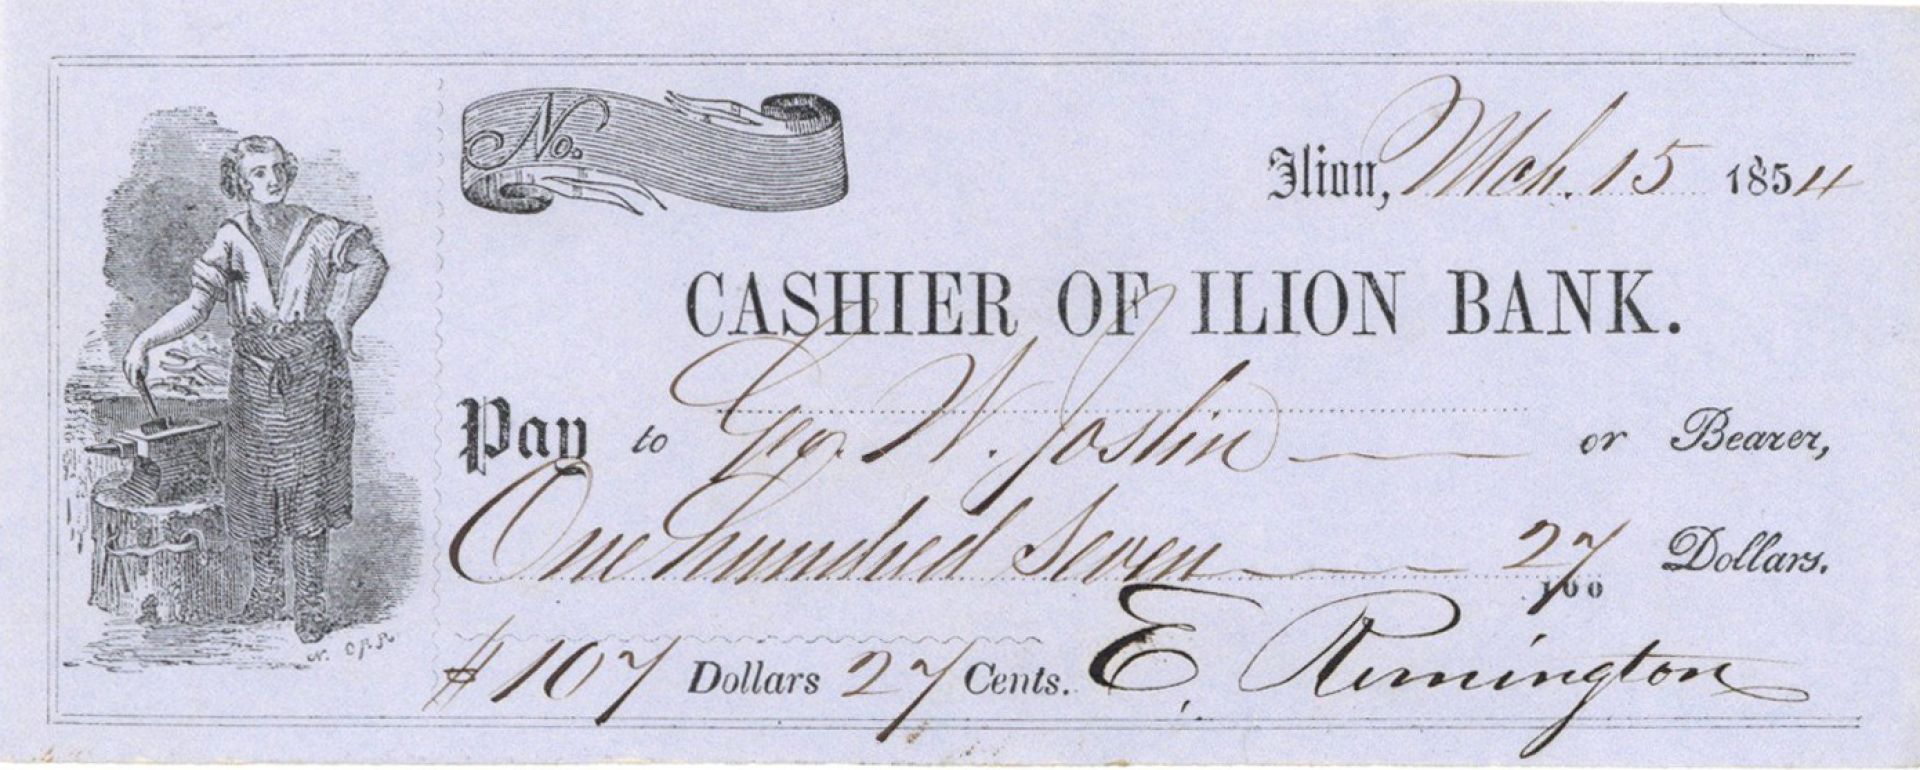 No.
Ilion, Mch. 15 1854
CASHIER OF ILION BANK.
Pay to Geo. W. Joslin or Bearer,
One hundred seven 27/100 Dollars.
$107 Dollars 27 Cents. E. Remington
N. Orr